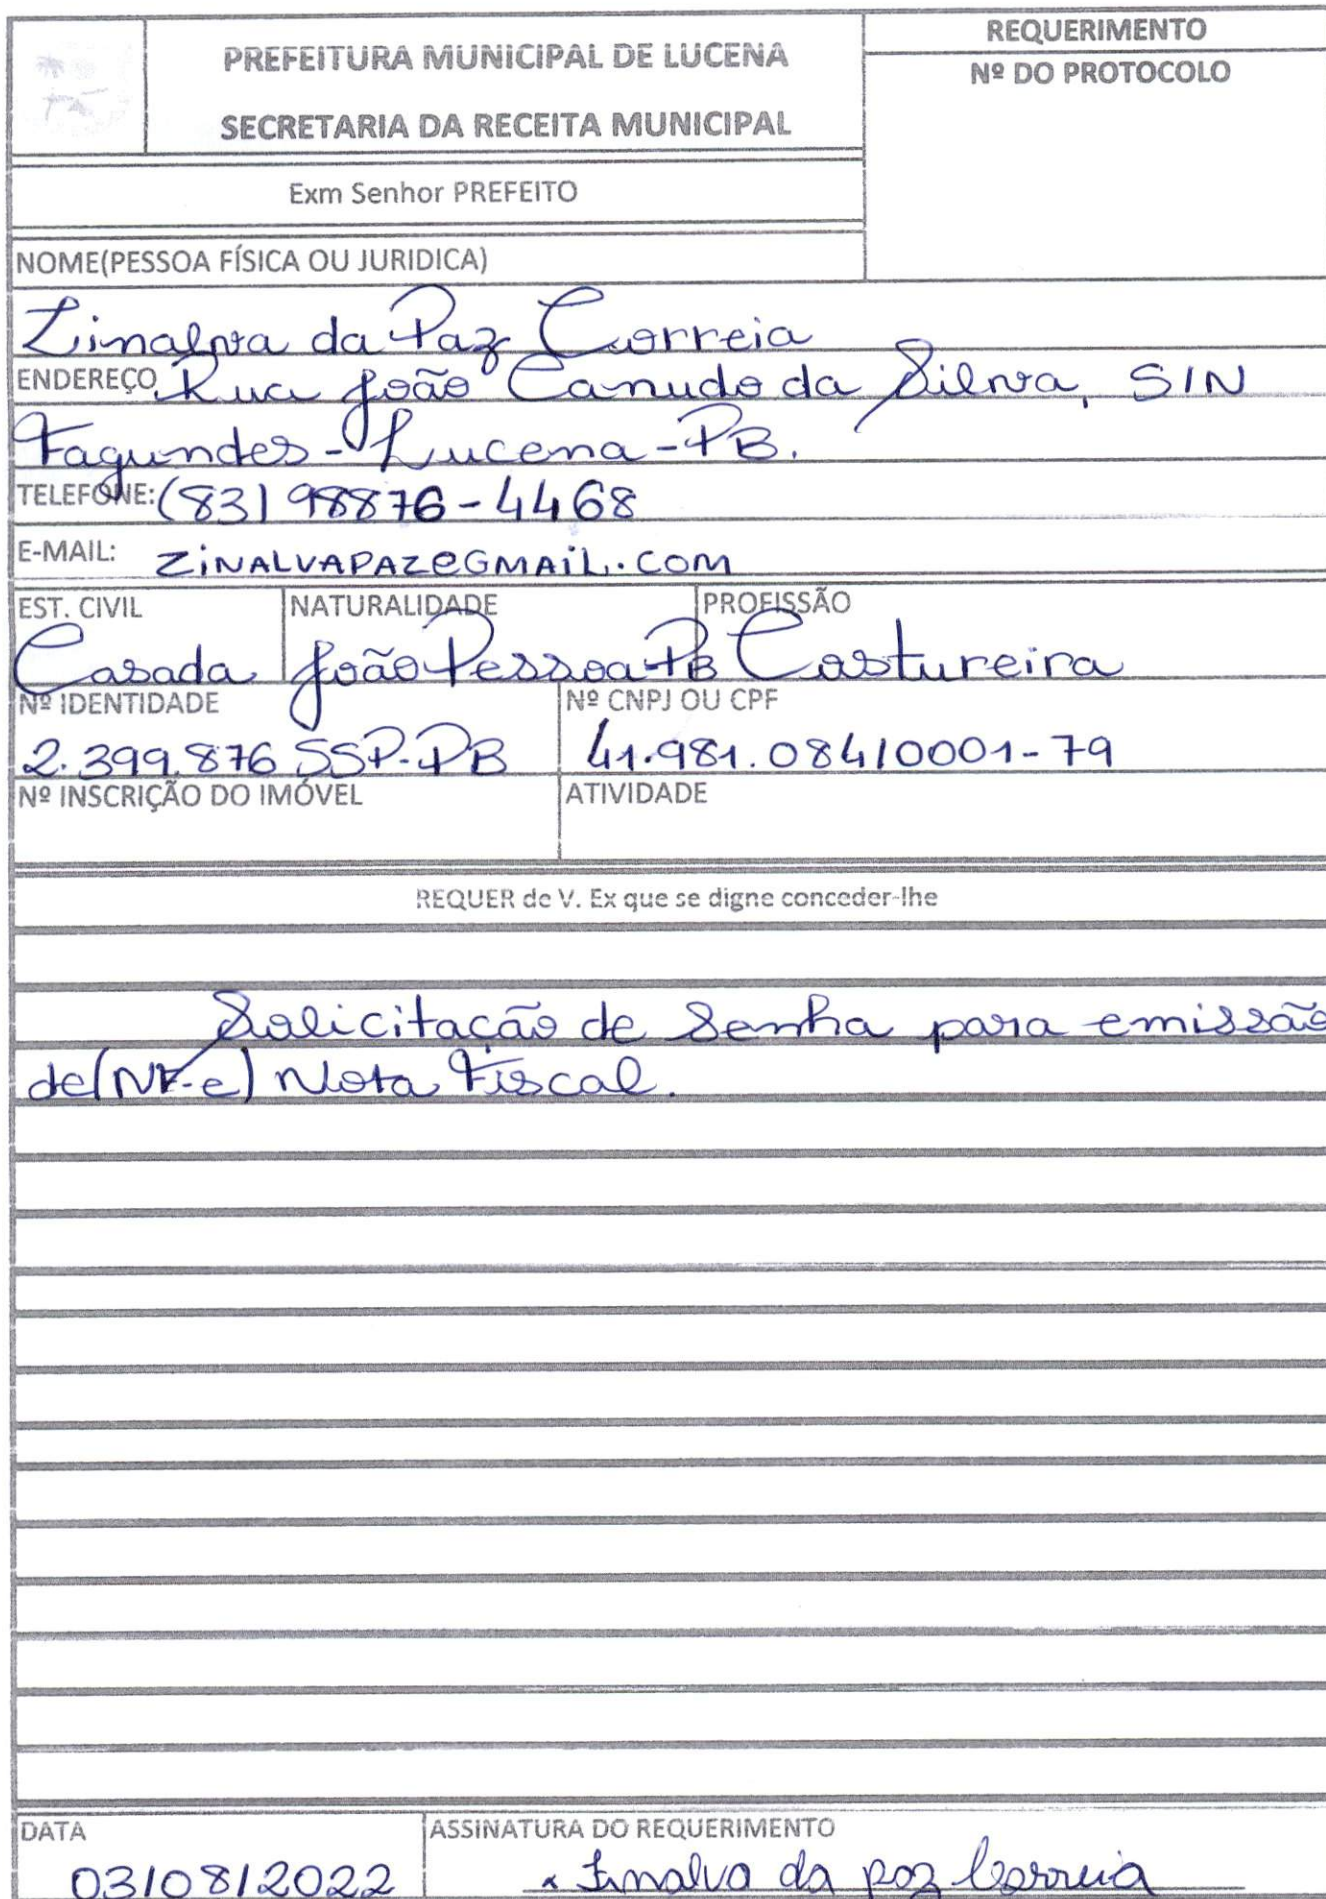 PREFEITURA MUNICIPAL DE LUCENA
SECRETARIA DA RECEITA MUNICIPAL
REQUERIMENTO
Nº DO PROTOCOLO
Exm Senhor PREFEITO
NOME(PESSOA FÍSICA OU JURIDICA)
Zinalva da Paz Correia
ENDEREÇO Rua João Canudo da Silva, S/N
Fagundes - Lucena - PB.
TELEFONE: (83) 98876-4468
E-MAIL: ZINALVAPAZ@GMAIL.COM
EST. CIVIL NATURALIDADE PROFISSÃO
Casada João Pessoa PB Costureira
Nº IDENTIDADE Nº CNPJ OU CPF
2.399.876 SSP-PB 41.981.084/0001-79
Nº INSCRIÇÃO DO IMÓVEL ATIVIDADE
REQUER de V. Ex que se digne conceder-lhe
Solicitação de Senha para emissão
de (NF-e) Nota Fiscal.
DATA ASSINATURA DO REQUERIMENTO
03/08/2022 x Zinalva da paz Correia